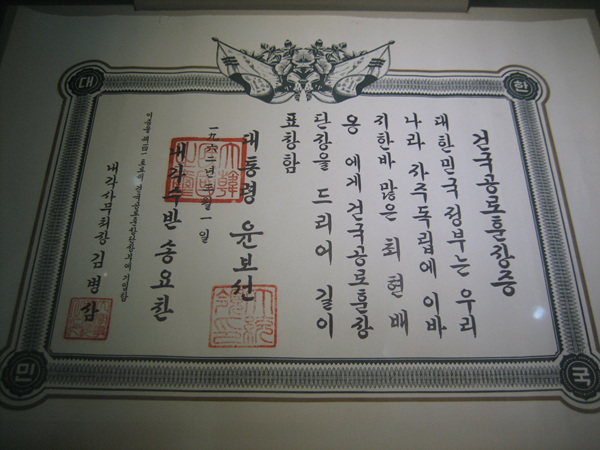 대 한 민 국
건국공로훈장증
대한민국 정부는 우리
나라 자주독립에 이바
지한바 많은 최현배
옹에게 건국공로훈장
단장을 드리어 길이
표창함
一九六二년 三월 一일
대통령 윤보선
내각수반 송요찬
내각사무처장 김병삼